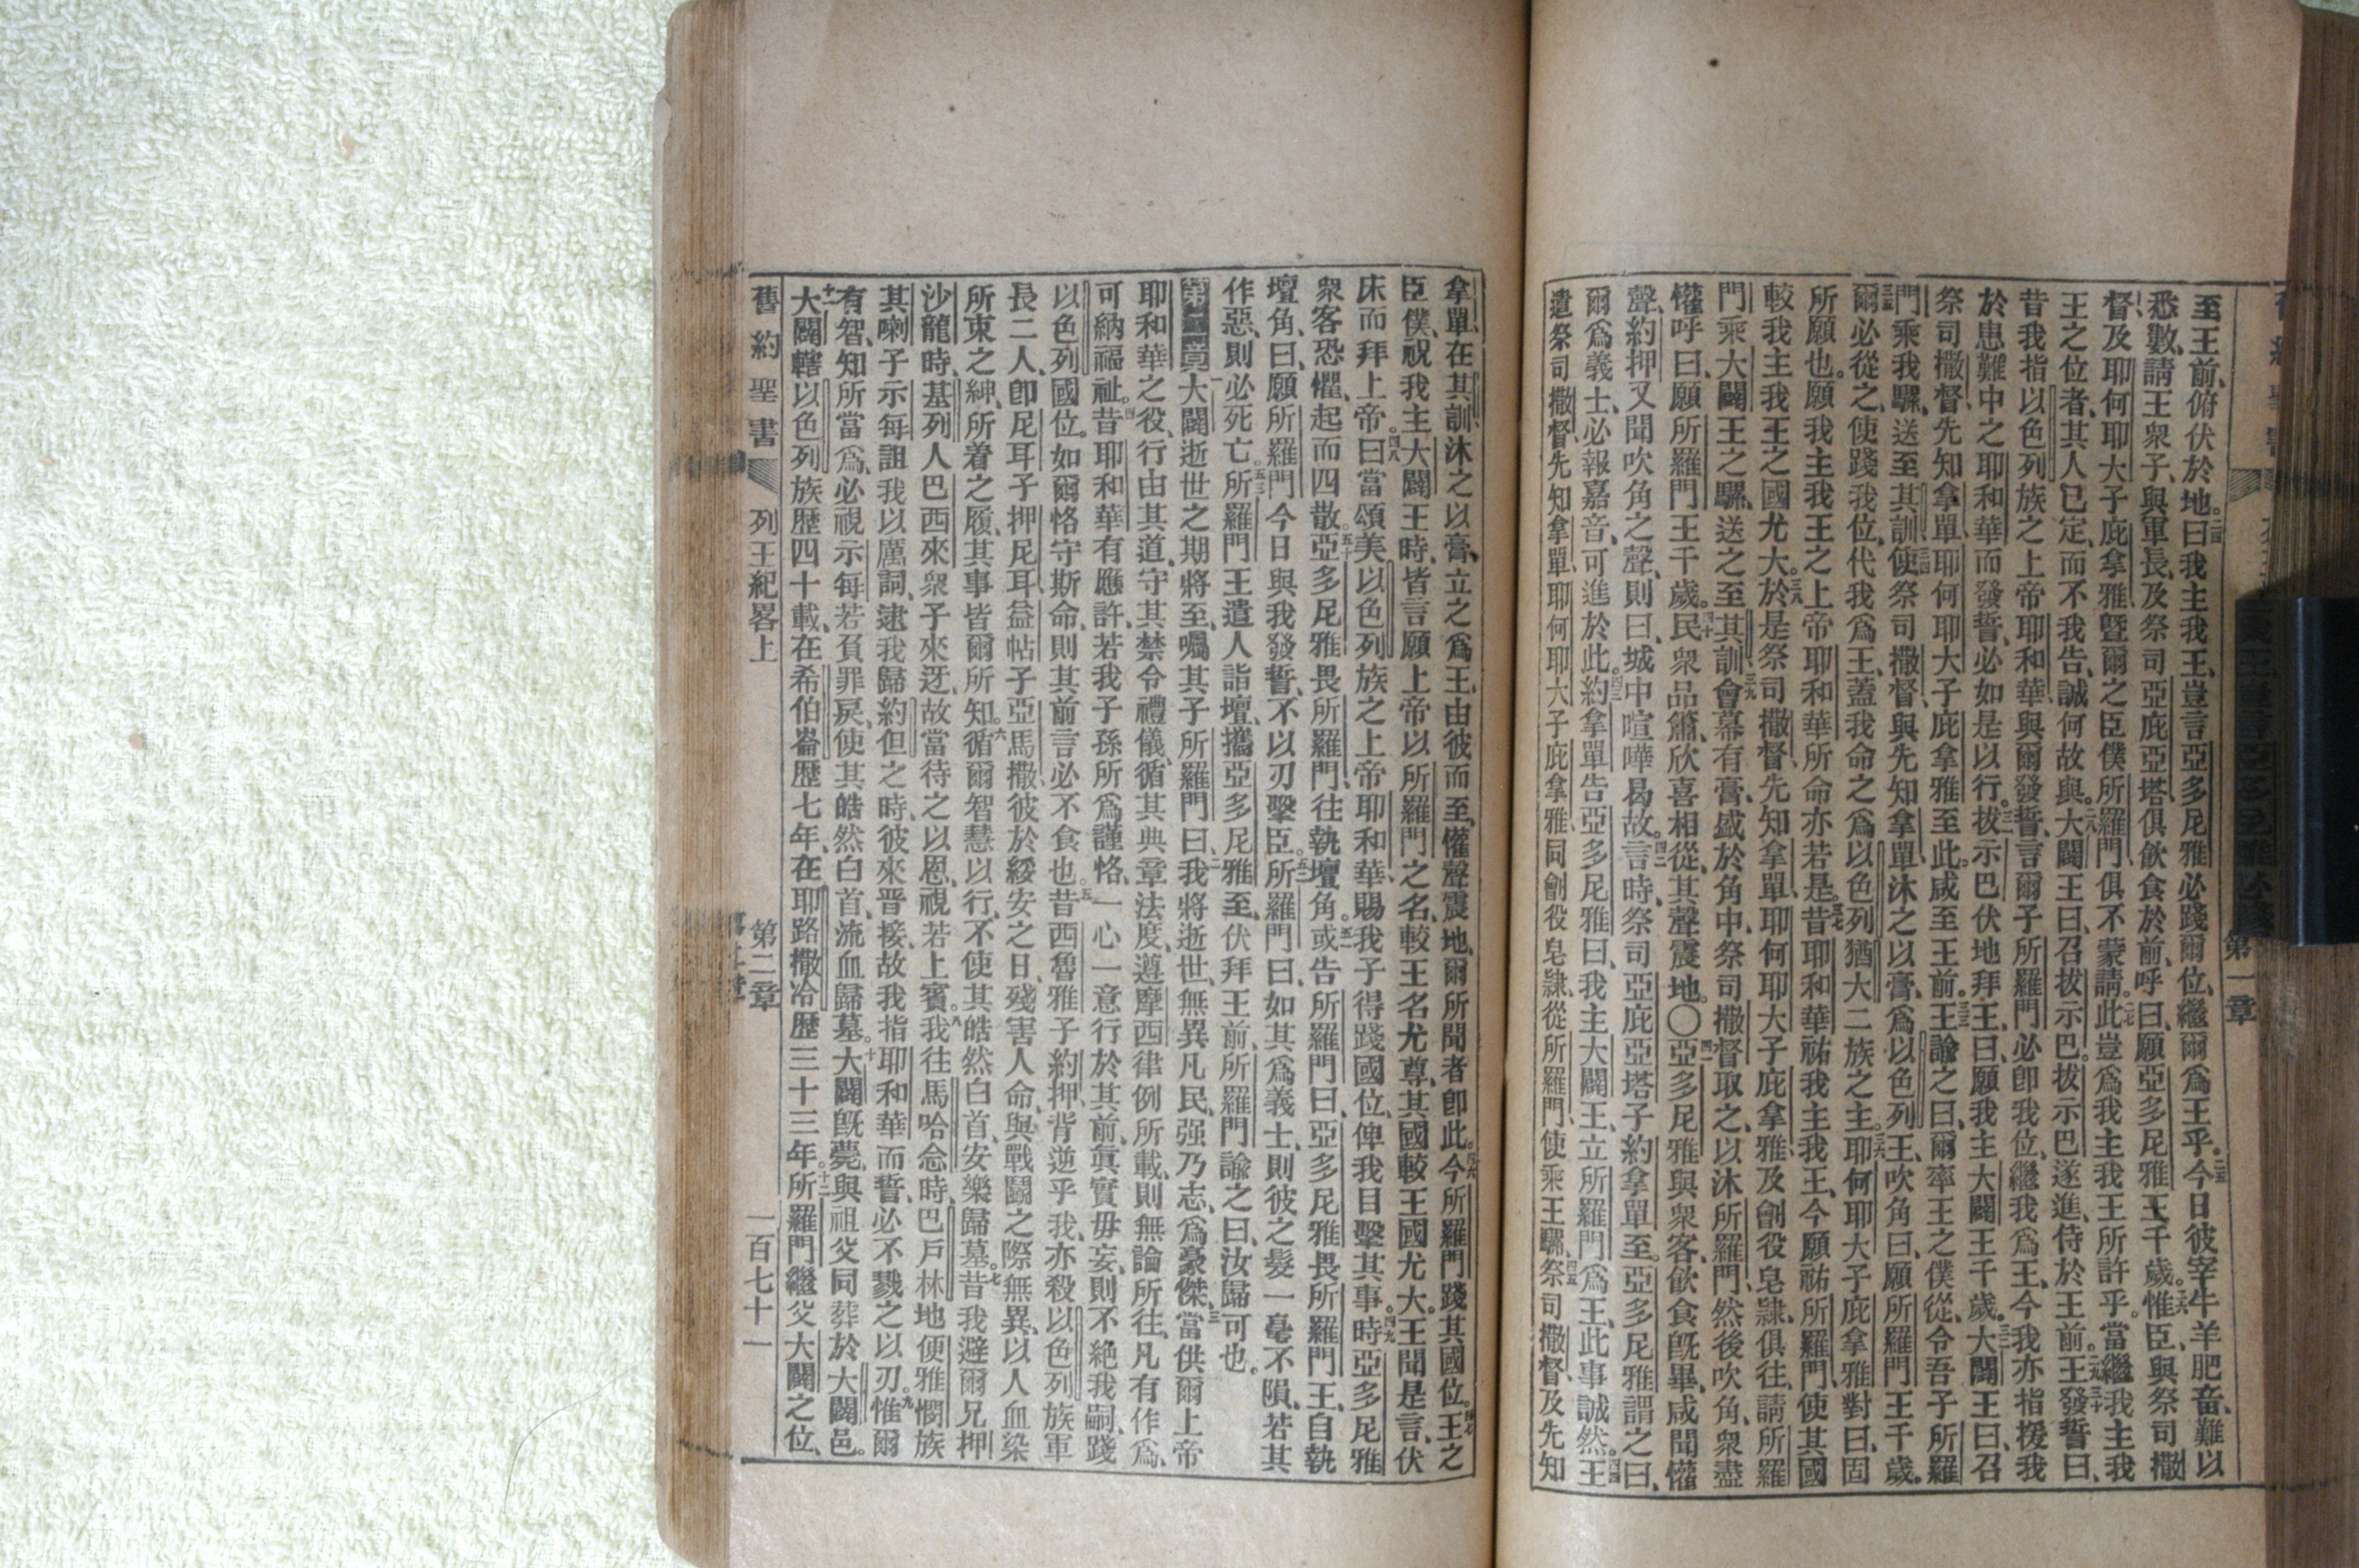 至王前、俯伏於地。二四曰、我主我王、豈言亞多尼雅必踐爾位、繼爾爲王乎。二五今日彼宰牛羊肥畜、難以
悉數、請王衆子、與軍長、及祭司亞庇亞塔、俱飲食於前、呼曰、願亞多尼雅王千歲。二六惟臣、與祭司撒
督、及耶何耶大子庇拿雅、暨爾之臣僕所羅門、俱不蒙請。二七此豈爲我主我王所許乎。當繼我主我
王之位者、其人已定、而不我告、誠何故與。二八大闢王曰、召拔示巴。拔示巴遂進、侍於王前。二九王發誓曰、三十
昔我指以色列族之上帝耶和華、與爾發誓、言爾子所羅門必卽我位、繼我爲王、今我亦指援我
於患難中之耶和華而發誓、必如是以行。三一拔示巴伏地拜王、曰、願我主大闢王千歲。三二大闢王曰、召
祭司撒督、先知拿單、耶何耶大子庇拿雅至此。咸至王前。三三王諭之曰、爾率王之僕從、令吾子所羅
門乘我騾、送至其訓、三四使祭司撒督、與先知拿單、沐之以膏、爲以色列王、吹角曰、願所羅門王千歲。
三五爾必從之、使踐我位、代我爲王、蓋我命之爲以色列猶大二族之主。三六耶何耶大子庇拿雅對曰、固
所願也。願我主我王之上帝耶和華所命亦若是。三七昔耶和華祐我主我王、今願祐所羅門、使其國
較我主我王之國尤大。三八於是祭司撒督、先知拿單、耶何耶大子庇拿雅、及劊役皂隷、俱往、請所羅
門乘大闢王之騾、送之至其訓、三九會幕有膏、盛於角中、祭司撒督取之、以沐所羅門、然後吹角、衆盡
懽呼曰、願所羅門王千歲。四十民衆品簫、欣喜相從、其聲震地。〇四一亞多尼雅與衆客、飲食旣畢、咸聞懽
聲、約押又聞吹角之聲、則曰、城中喧嘩曷故。四二言時、祭司亞庇亞塔子約拿單至。亞多尼雅謂之曰、
爾爲義士、必報嘉音、可進於此。四三約拿單告亞多尼雅曰、我主大闢王、立所羅門爲王、此事誠然。四四王
遣祭司撒督、先知拿單、耶何耶大子庇拿雅、同劊役皂隷、從所羅門、使乘王騾、四五祭司撒督、及先知
拿單、在其訓沐之以膏、立之爲王、由彼而至、懽聲震地、爾所聞者卽此。四六今所羅門踐其國位。四七王之
臣僕、祝我主大闢王時、皆言願上帝以所羅門之名、較王名尤尊、其國較王國尤大。王聞是言、伏
床而拜上帝。四八曰、當頌美以色列族之上帝耶和華、賜我子得踐國位、俾我目擊其事。四九時亞多尼雅
衆客恐懼、起而四散。五十亞多尼雅畏所羅門、往執壇角。五一或告所羅門曰、亞多尼雅畏所羅門王、自執
壇角、曰、願所羅門今日與我發誓、不以刃擊臣。五二所羅門曰、如其爲義士、則彼之髮一毫不隕、若其
作惡、則必死亡。五三所羅門王遣人詣壇、攜亞多尼雅至、伏拜王前、所羅門諭之曰、汝歸可也。
第二章 一大闢逝世之期將至、囑其子所羅門曰、二我將逝世、無異凡民、强乃志、爲豪傑、三當供爾上帝
耶和華之役、行由其道、守其禁令禮儀、循其典章法度、遵摩西律例所載、則無論所往、凡有作爲、
可納福祉。四昔耶和華有應許、若我子孫所爲謹恪、一心一意行於其前、眞實毋妄、則不絕我嗣、踐
以色列國位。如爾恪守斯命、則其前言必不食也。五昔西魯雅子約押、背逆乎我、亦殺以色列族軍
長二人、卽尼耳子押尼耳、益帖子亞馬撒、彼於綏安之日、殘害人命、與戰鬭之際無異、以人血染
所束之紳、所着之履、其事皆爾所知。六循爾智慧以行、不使其皓然白首、安樂歸墓。七昔我避爾兄押
沙龍時、基列人巴西來衆子來迓、故當待之以恩、視若上賓。八我往馬哈念時、巴戶林地便雅憫族
其喇子示每詛我以厲詞、逮我歸約但之時、彼來晋接、故我指耶和華而誓、必不戮之以刃。九惟爾
有智、知所當爲、必視示每若負罪戾、使其皓然白首、流血歸墓。十大闢旣薨、與祖父同葬於大闢邑。
十一大闢轄以色列族歷四十載、在希伯崙歷七年、在耶路撒冷歷三十三年。十二所羅門繼父大闢之位、
舊約聖書 列王紀畧上 第二章 一百七十一